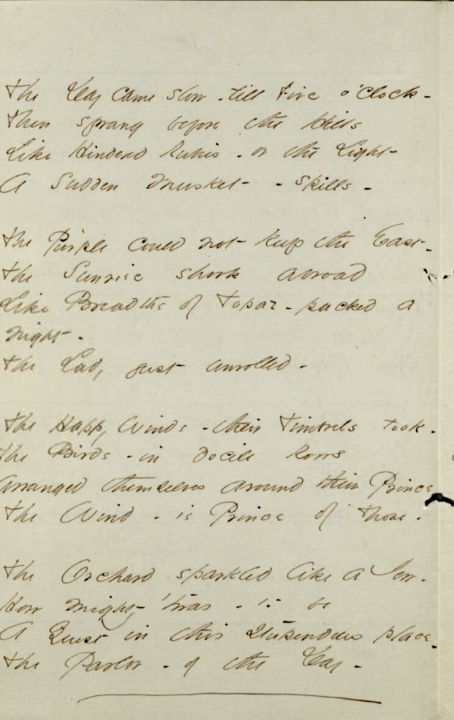 The Day came slow - till Five o'Clock -
Then sprang before the Hills
Like Hindered Rubies - or the Light
A Sudden Musket - Spills -
The Purple could not keep the East -
The Sunrise shook abroad
Like Breadths of Topaz - packed a
night -
The Lady just unrolled -
The Happy Winds - their Timbrels took -
The Birds - in docile Rows
Arranged themselves around their Prince
The Wind - is Prince of Those -
The Orchard sparkled like a Jew -
How mighty 'twas - to be
A Guest in this stupendous place -
The Parlor - of the Day -